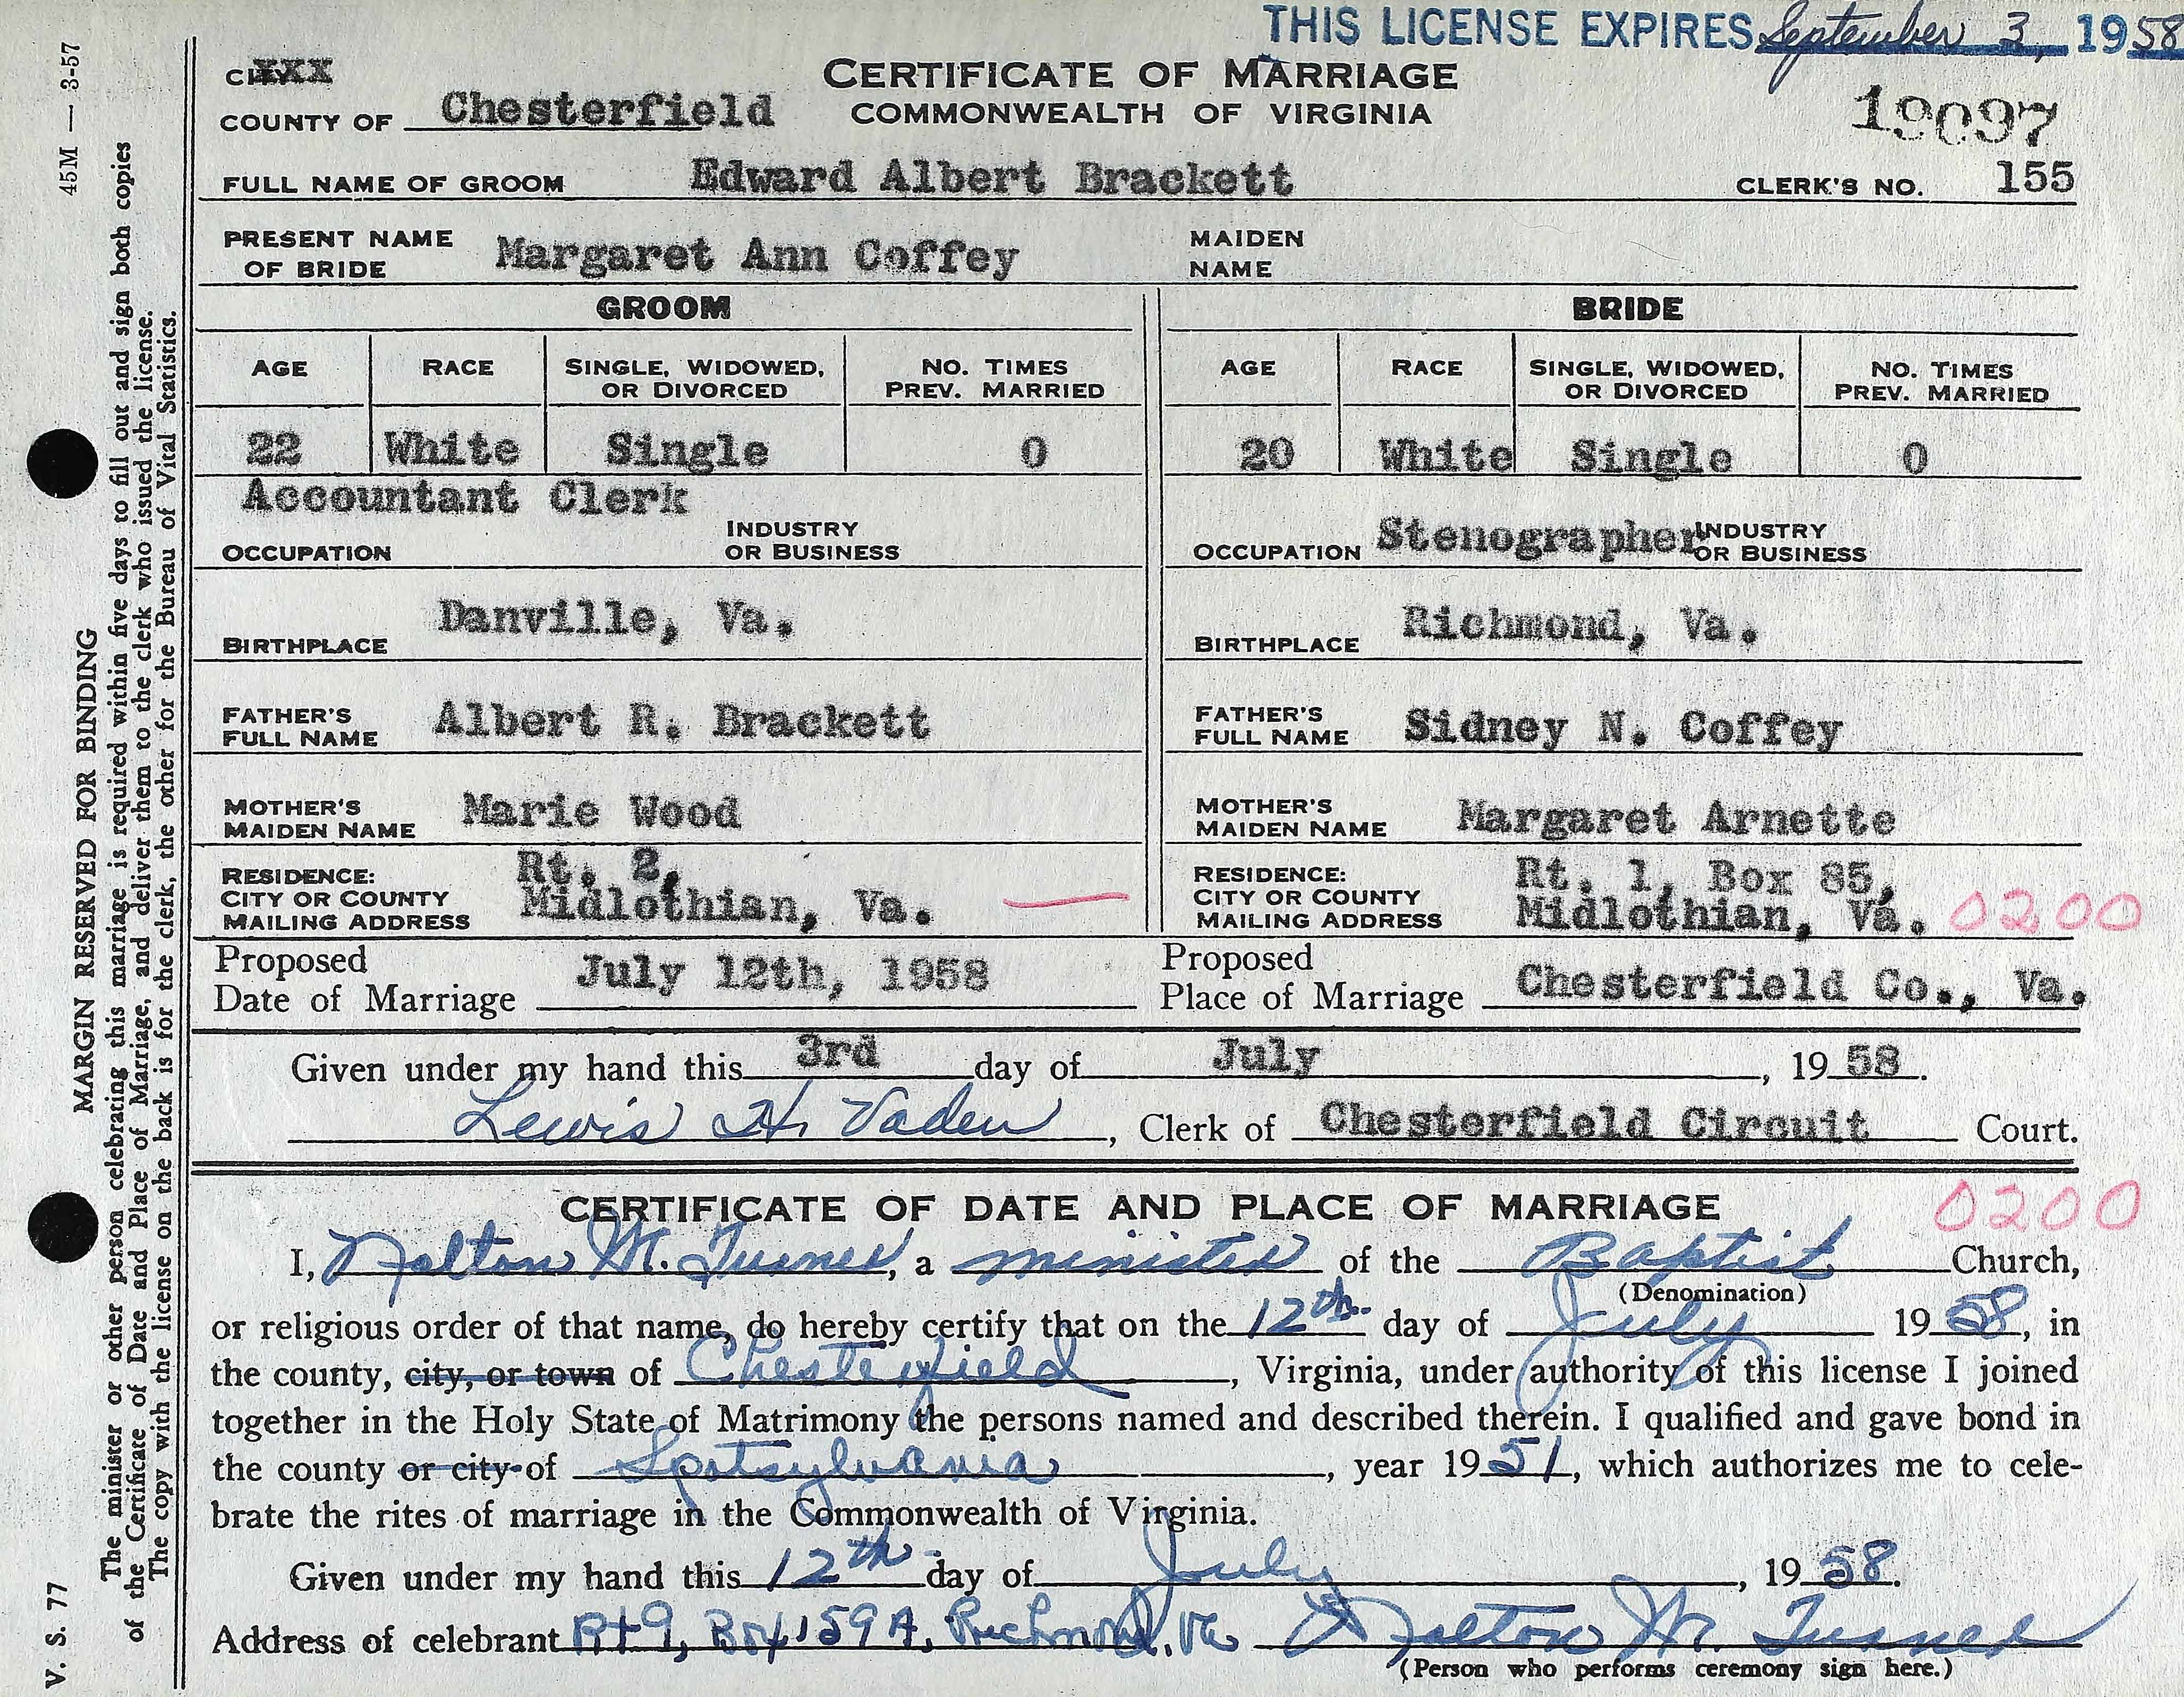 THIS LICENSE EXPIRES September 3, 1958
CITY XXX
CERTIFICATE OF MARRIAGE
COUNTY OF Chesterfield COMMONWEALTH OF VIRGINIA
19097
FULL NAME OF GROOM Edward Albert Brackett CLERK'S NO. 155
PRESENT NAME OF BRIDE Margaret Ann Coffey MAIDEN NAME
GROOM BRIDE
AGE RACE SINGLE, WIDOWED, OR DIVORCED NO. TIMES PREV. MARRIED AGE RACE SINGLE, WIDOWED, OR DIVORCED NO. TIMES PREV. MARRIED
22 White Single 0 20 White Single 0
OCCUPATION Accountant Clerk INDUSTRY OR BUSINESS OCCUPATION Stenographer INDUSTRY OR BUSINESS
BIRTHPLACE Danville, Va. BIRTHPLACE Richmond, Va.
FATHER'S FULL NAME Albert R. Brackett FATHER'S FULL NAME Sidney N. Coffey
MOTHER'S MAIDEN NAME Marie Wood MOTHER'S MAIDEN NAME Margaret Arnette
RESIDENCE: CITY OR COUNTY MAILING ADDRESS Rt. 2, Midlothian, Va. RESIDENCE: CITY OR COUNTY MAILING ADDRESS Rt. 1, Box 85, Midlothian, Va. 0200
Proposed Date of Marriage July 12th, 1958 Proposed Place of Marriage Chesterfield Co., Va.
Given under my hand this 3rd day of July, 1958.
Lewis H. Vaden, Clerk of Chesterfield Circuit Court.
CERTIFICATE OF DATE AND PLACE OF MARRIAGE 0200
I, M. Turner, a minister of the Baptist Church,
(Denomination)
or religious order of that name, do hereby certify that on the 12th day of July 1958, in
the county, city, or town of Chesterfield, Virginia, under authority of this license I joined
together in the Holy State of Matrimony the persons named and described therein. I qualified and gave bond in
the county or city of Spotsylvania, year 1951, which authorizes me to cele-
brate the rites of marriage in the Commonwealth of Virginia.
Given under my hand this 12th day of July, 1958.
Address of celebrant Rt 9, Box 159A, Richmond, Va M. Turner
(Person who performs ceremony sign here.)
V. S. 77 MARGIN RESERVED FOR BINDING 45M — 3-57
The minister or other person celebrating this marriage is required within five days to fill out and sign both copies
of the Certificate of Date and Place of Marriage, and deliver them to the clerk who issued the license.
The copy with the license on the back is for the clerk, the other for the Bureau of Vital Statistics.